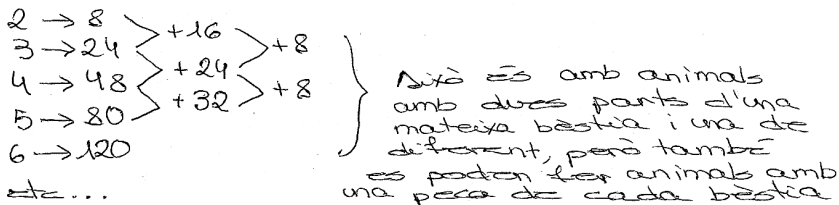 2 → 8
+16
3 → 24
+8
+24
4 → 48
+8
+32
5 → 80
6 → 120
etc...
Això és amb animals
amb dues parts d'una
mateixa bèstia i una de
diferent, però també
es poden fer animals amb
una peça de cada bèstia